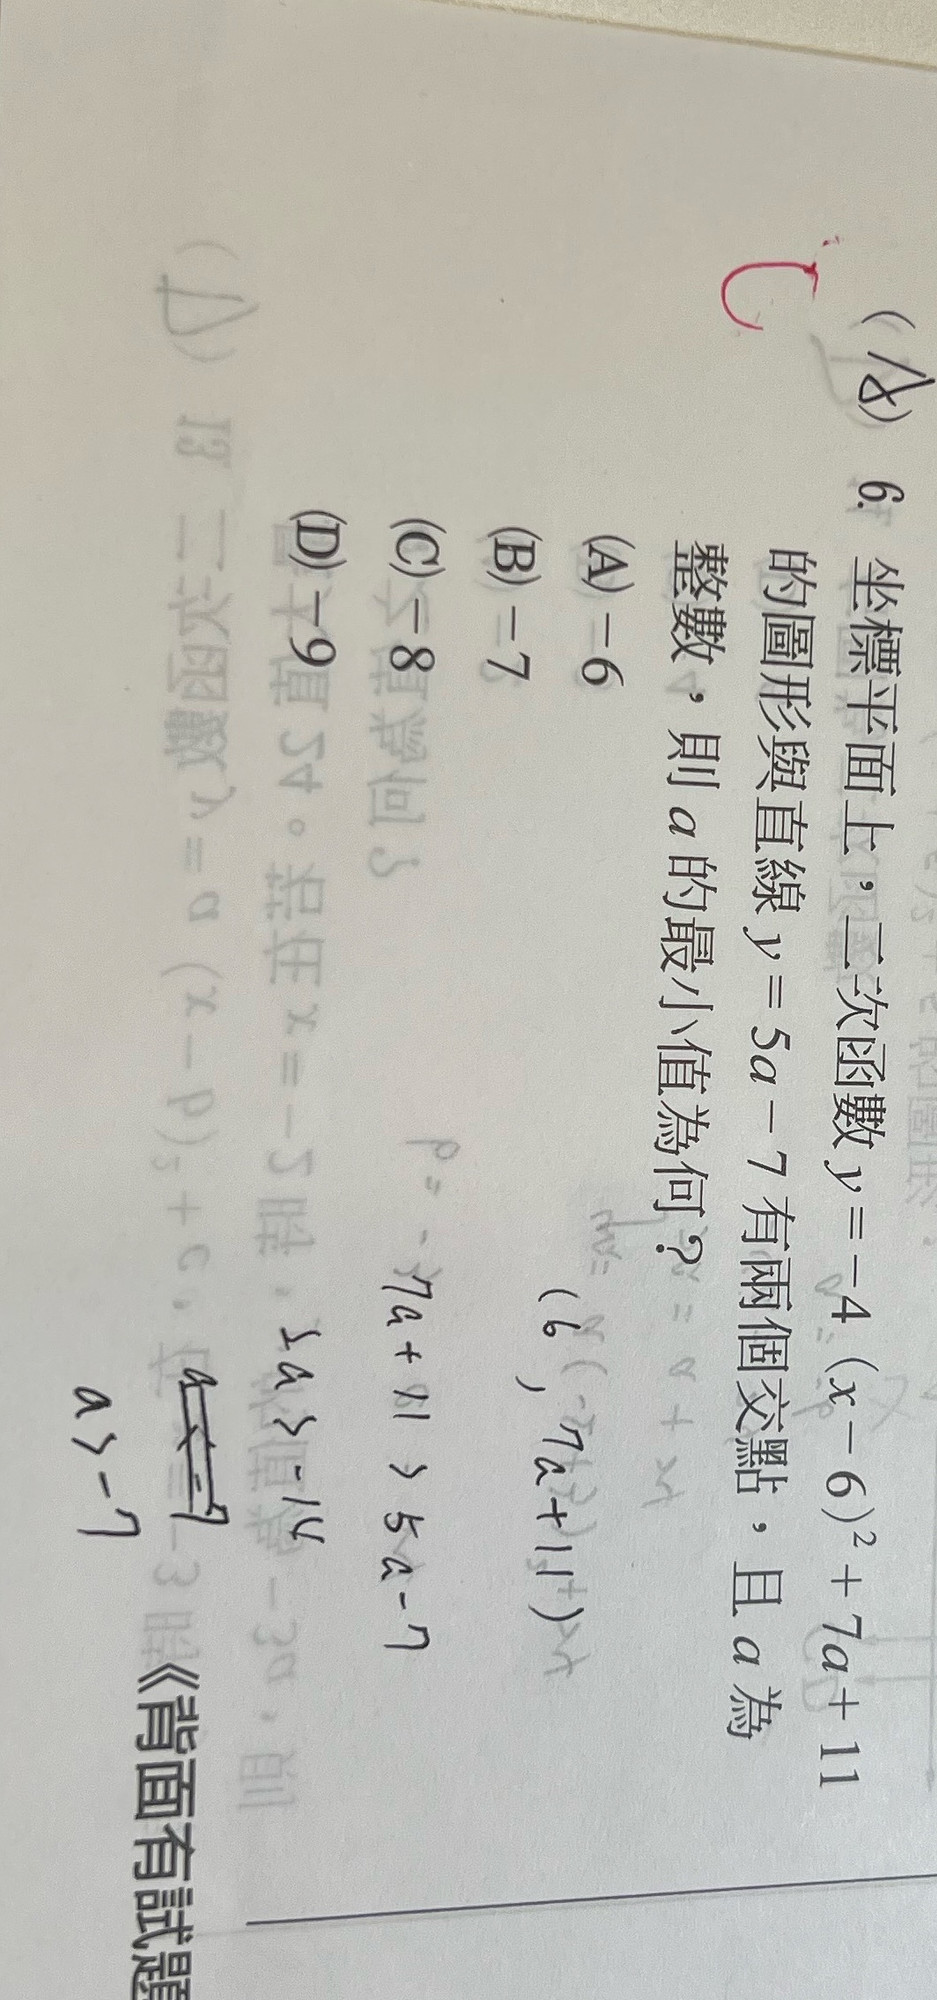 ( ) 6. 坐標平面上，二次函數 y＝－4（x－6）²＋7a＋11
的圖形與直線 y＝5a－7 有兩個交點，且 a 為
整數，則 a 的最小值為何？
(A)－6
(B)－7
(C)－8
(D)－9
(6, 7a+11)
7a+11 > 5a-7
2a > -14
a > -7
《背面有試題